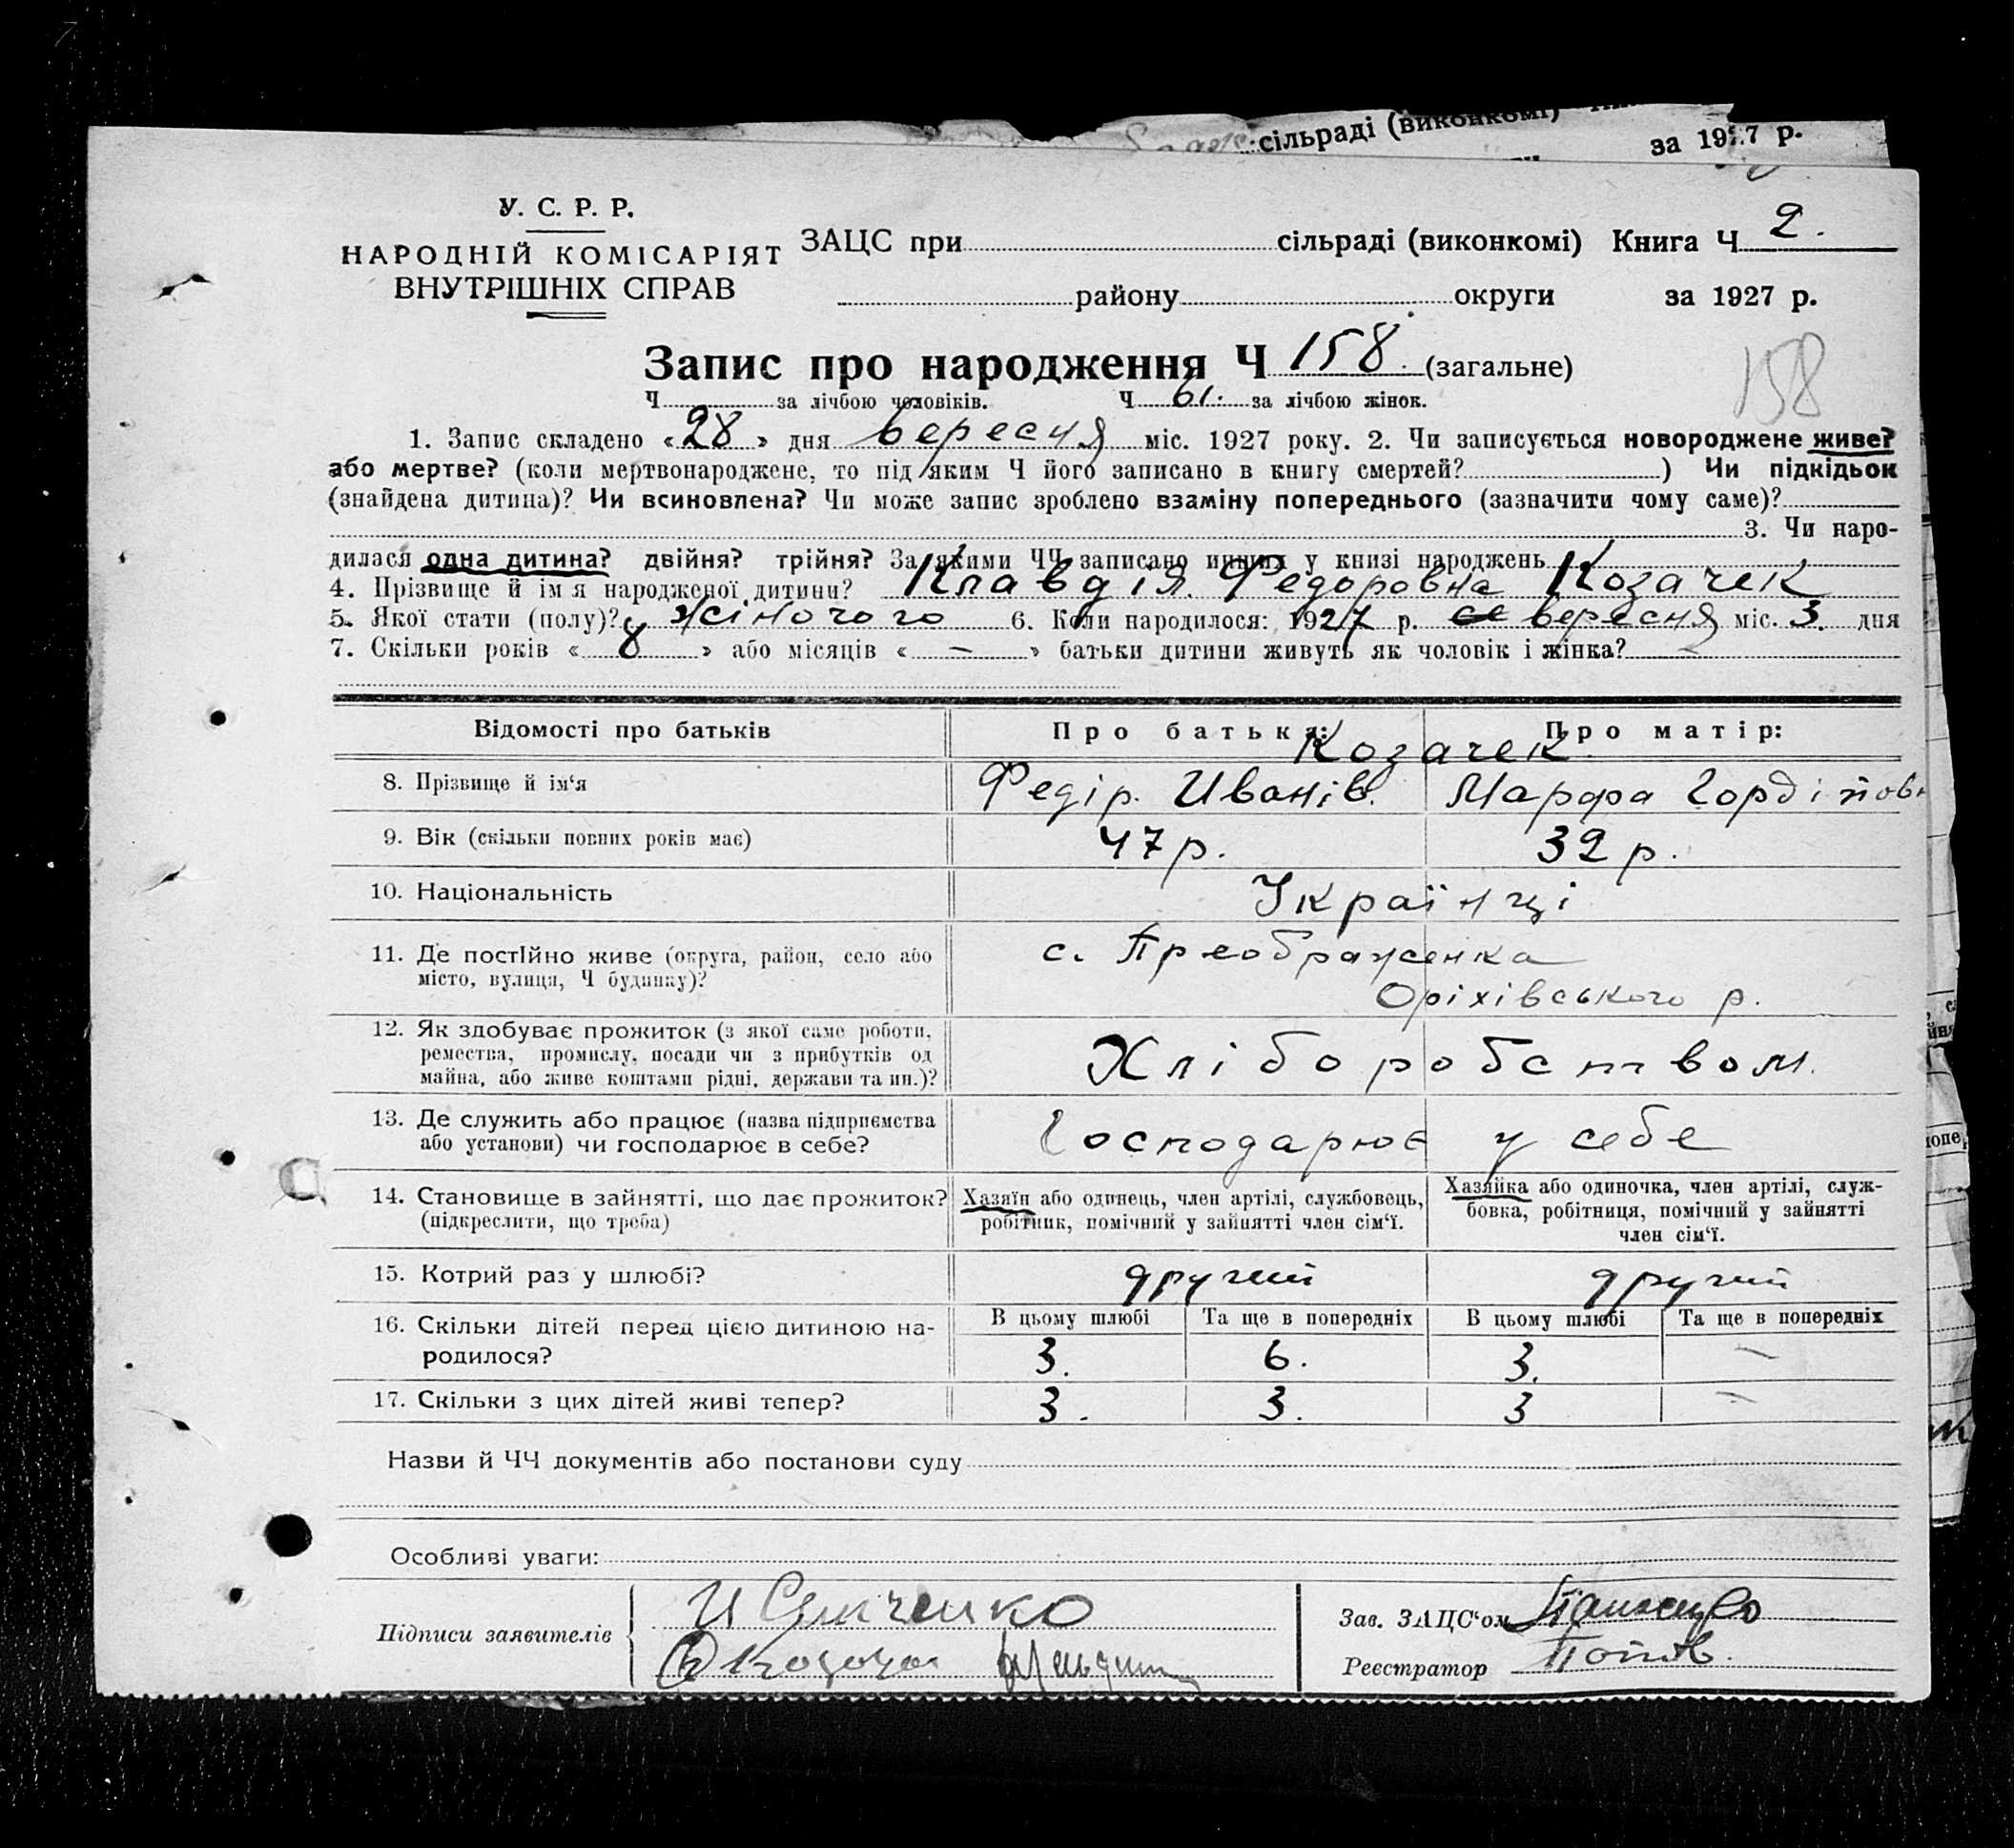 сільраді (виконкомі)
за 1927 р.
У. С. Р. Р.
НАРОДНІЙ КОМІСАРІЯТ
ВНУТРІШНІХ СПРАВ
ЗАЦС при сільраді (виконкомі) Книга Ч 2.
району округи за 1927 р.
Запис про народження Ч 158. (загальне)
158
Ч за лічбою чоловіків. Ч 61. за лічбою жінок.
1. Запис складено «28» дня вересня міс. 1927 року. 2. Чи записується новороджене живе?
або мертве? (коли мертвонароджене, то під яким Ч його записано в книгу смертей? ) Чи підкідьок
(знайдена дитина)? Чи всиновлена? Чи може запис зроблено взаміну попереднього (зазначити чому саме)?
3. Чи наро-
дилася одна дитина? двійня? трійня? За якими ЧЧ записано инших у книзі народжень
4. Прізвище й ім'я народженої дитини? Клавдія. Федоровна Козачек
5. Якої стати (полу)? жіночого 6. Коли народилося: 1927 р. вересня міс. 3. дня
7. Скільки років «8» або місяців «—» батьки дитини живуть як чоловік і жінка?
Відомості про батьків Про батька: Про матір:
Козачек
8. Прізвище й ім'я Федір. Иванів. Марфа Гордіївн
9. Вік (скільки повних років має) 47 р. 32 р.
10. Національність Українці
11. Де постійно живе (округа, район, село або с. Преображенка
місто, вулиця, Ч будинку)? Оріхівського р.
12. Як здобуває прожиток (з якої саме роботи,
ремества, промислу, посади чи з прибутків од
майна, або живе коштами рідні, держави та ин.)? Хліборобством.
13. Де служить або працює (назва підприємства
або установи) чи господарює в себе? Господарює у себе
14. Становище в зайнятті, що дає прожиток? Хазяїн або одинець, член артілі, службовець, Хазяйка або одиночка, член артілі, служ-
(підкреслити, що треба) робітник, помічний у зайнятті член сім'ї. бовка, робітниця, помічний у зайнятті
член сім'ї.
15. Котрий раз у шлюбі? другий другий
16. Скільки дітей перед цією дитиною на- В цьому шлюбі Та ще в попередніх В цьому шлюбі Та ще в попередніх
родилося? 3. 6. 3. —
17. Скільки з цих дітей живі тепер? 3. 3. 3 —
Назви й ЧЧ документів або постанови суду
Особливі уваги:
Підписи заявителів
Зав. ЗАЦС'ом
Реєстратор Попов.